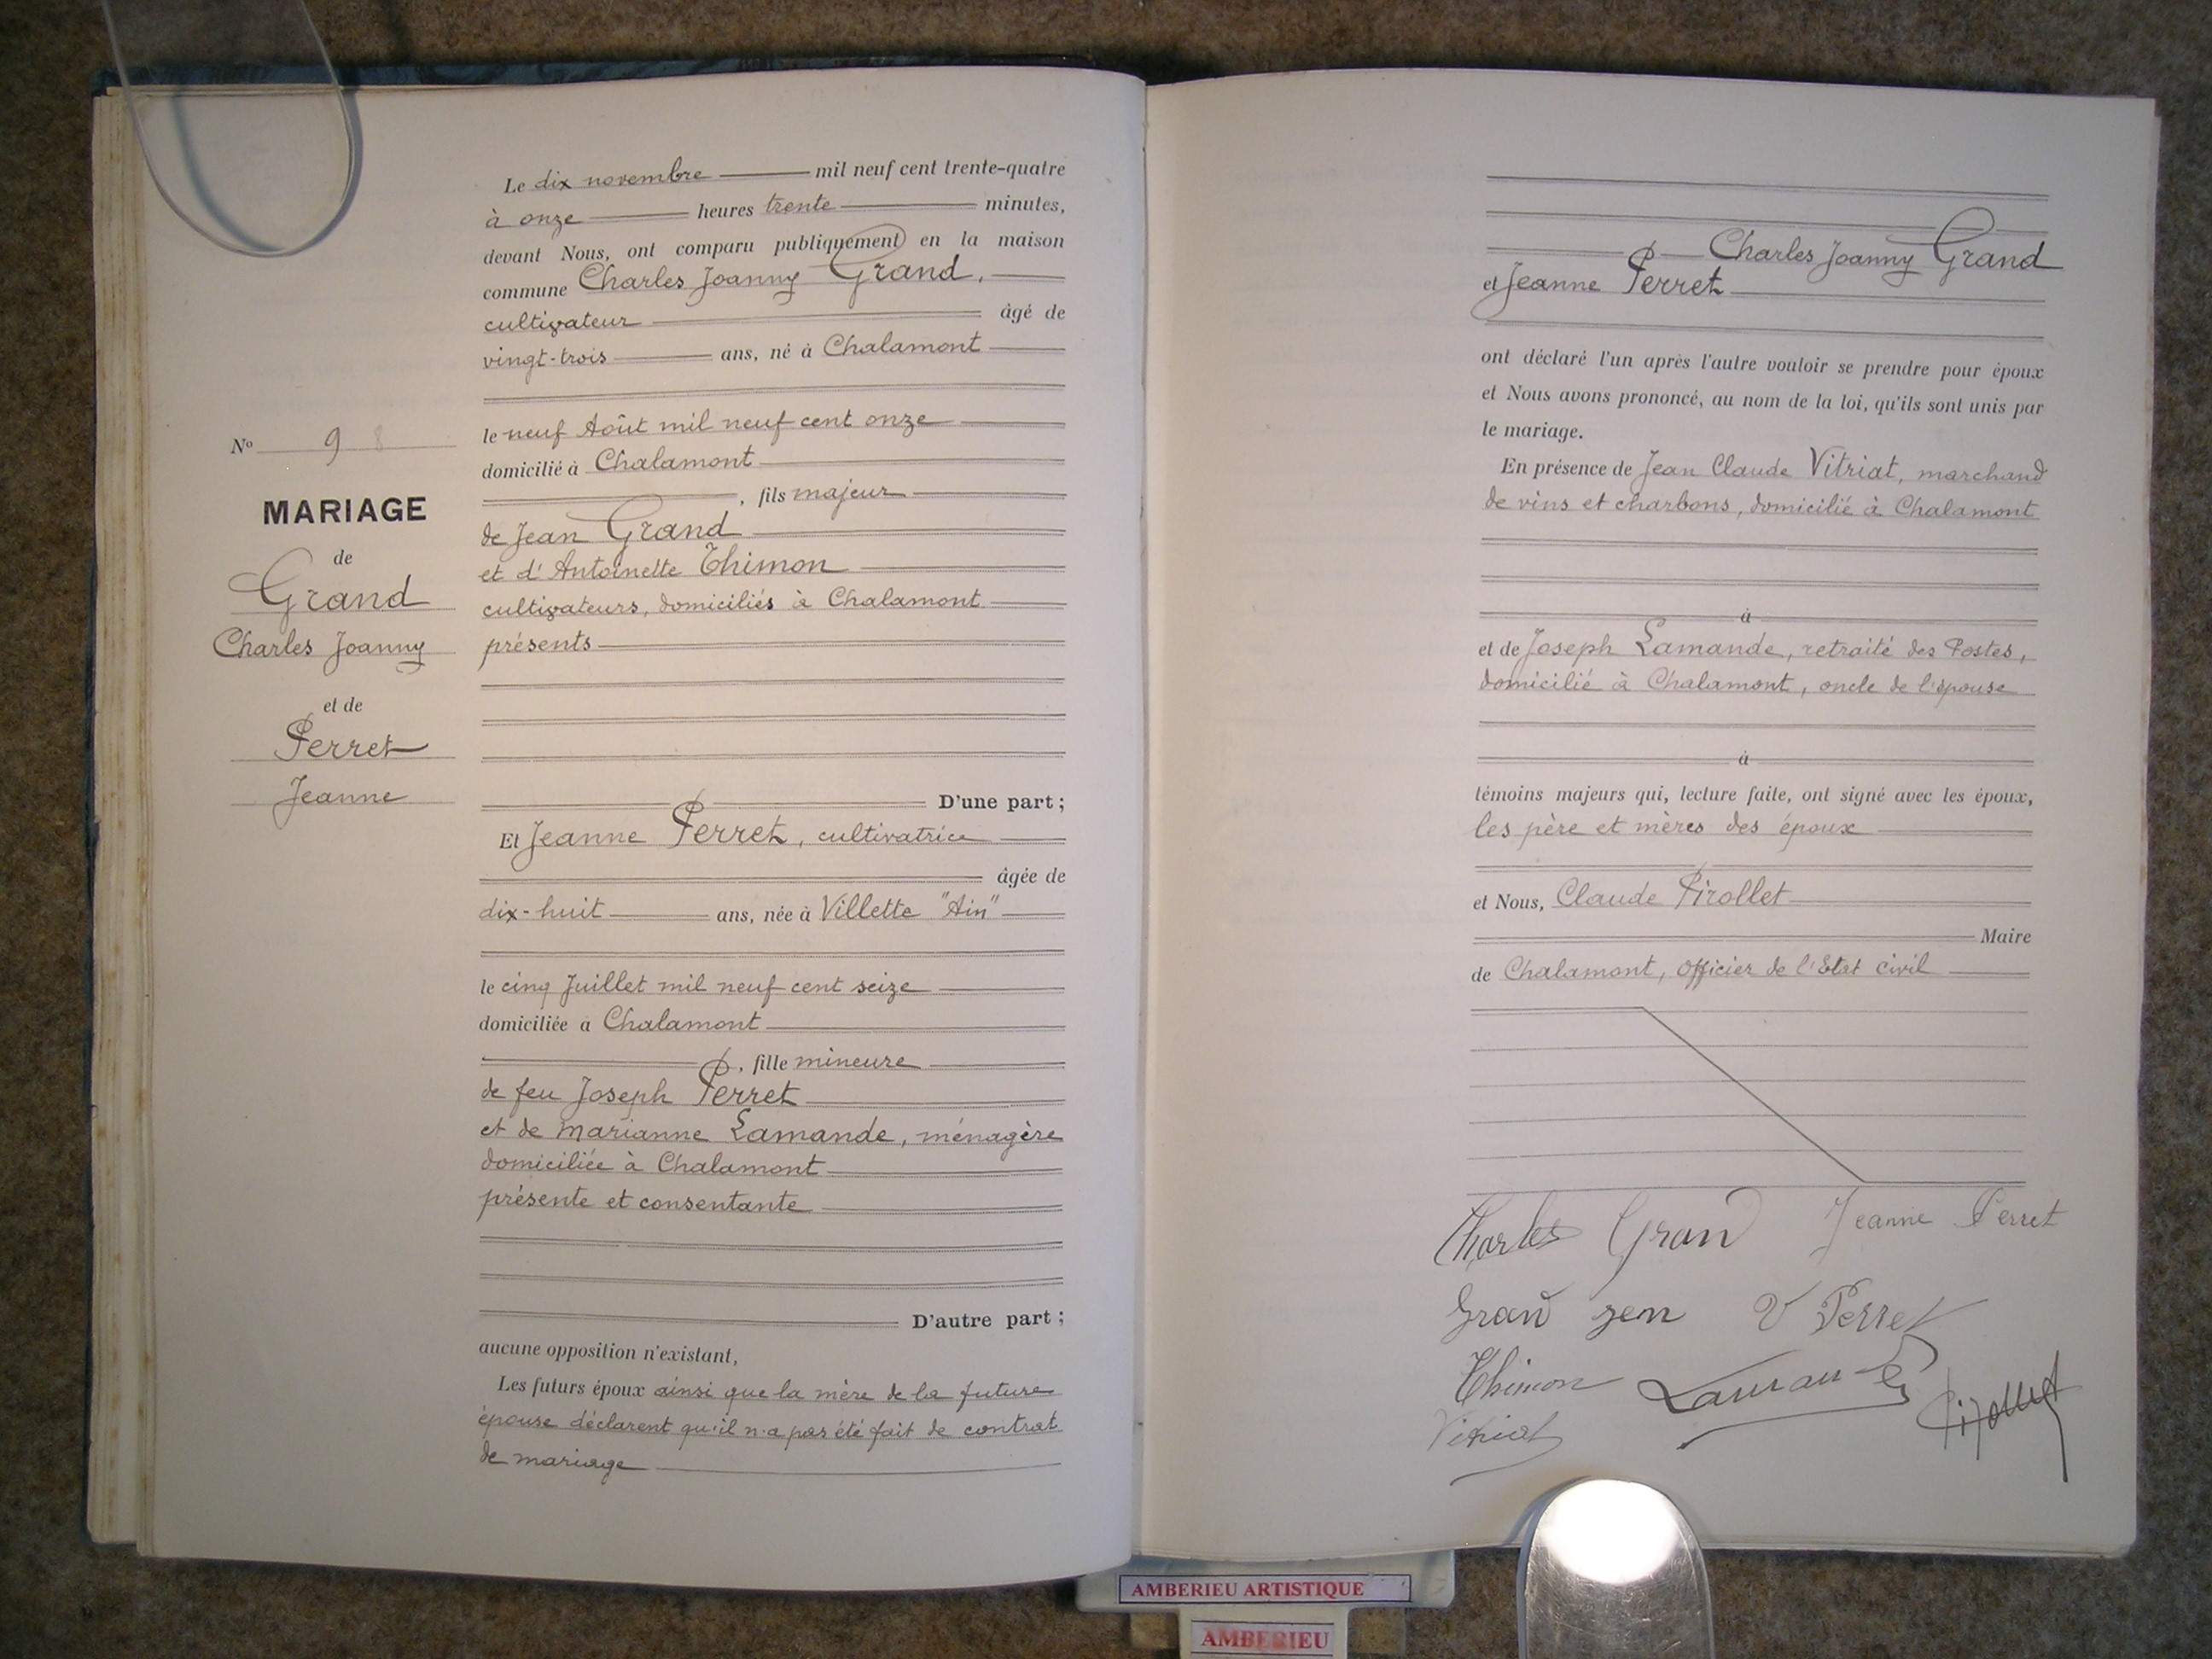 Le dix novembre mil neuf cent trente-quatre
à onze heures trente minutes,
devant Nous, ont comparu publiquement en la maison
commune Charles Joanny Grand,
cultivateur âgé de
vingt-trois ans, né à Chalamont
le neuf Août mil neuf cent onze
domicilié à Chalamont
, fils majeur
de Jean Grand
et d'Antoinette Thimon
cultivateurs, domiciliés à Chalamont
présents
D'une part ;
Et Jeanne Perret, cultivatrice
âgée de
dix-huit ans, née à Villette "Ain"
le cinq Juillet mil neuf cent seize
domiciliée à Chalamont
, fille mineure
de feu Joseph Perret
et de Marianne Lamande, ménagère
domiciliée à Chalamont
présente et consentante
D'autre part ;
aucune opposition n'existant,
Les futurs époux ainsi que la mère de la future
épouse déclarent qu'il n'a pas été fait de contrat
de mariage
N° 9
MARIAGE
de
Grand
Charles Joanny
et de
Perret
Jeanne
Charles Joanny Grand
et Jeanne Perret
ont déclaré l'un après l'autre vouloir se prendre pour époux
et Nous avons prononcé, au nom de la loi, qu'ils sont unis par
le mariage.
En présence de Jean Claude Vitriat, marchand
de vins et charbons, domicilié à Chalamont
à
et de Joseph Lamande, retraité des Postes,
domicilié à Chalamont, oncle de l'épouse
à
témoins majeurs qui, lecture faite, ont signé avec les époux,
les père et mères des époux
et Nous, Claude Pirollet
Maire
de Chalamont, Officier de l'Etat civil
Charles Grand Jeanne Perret
Grand jen V Perret
Thimon Lamande Pirollet
Vitriat
AMBERIEU ARTISTIQUE
AMBERIEU